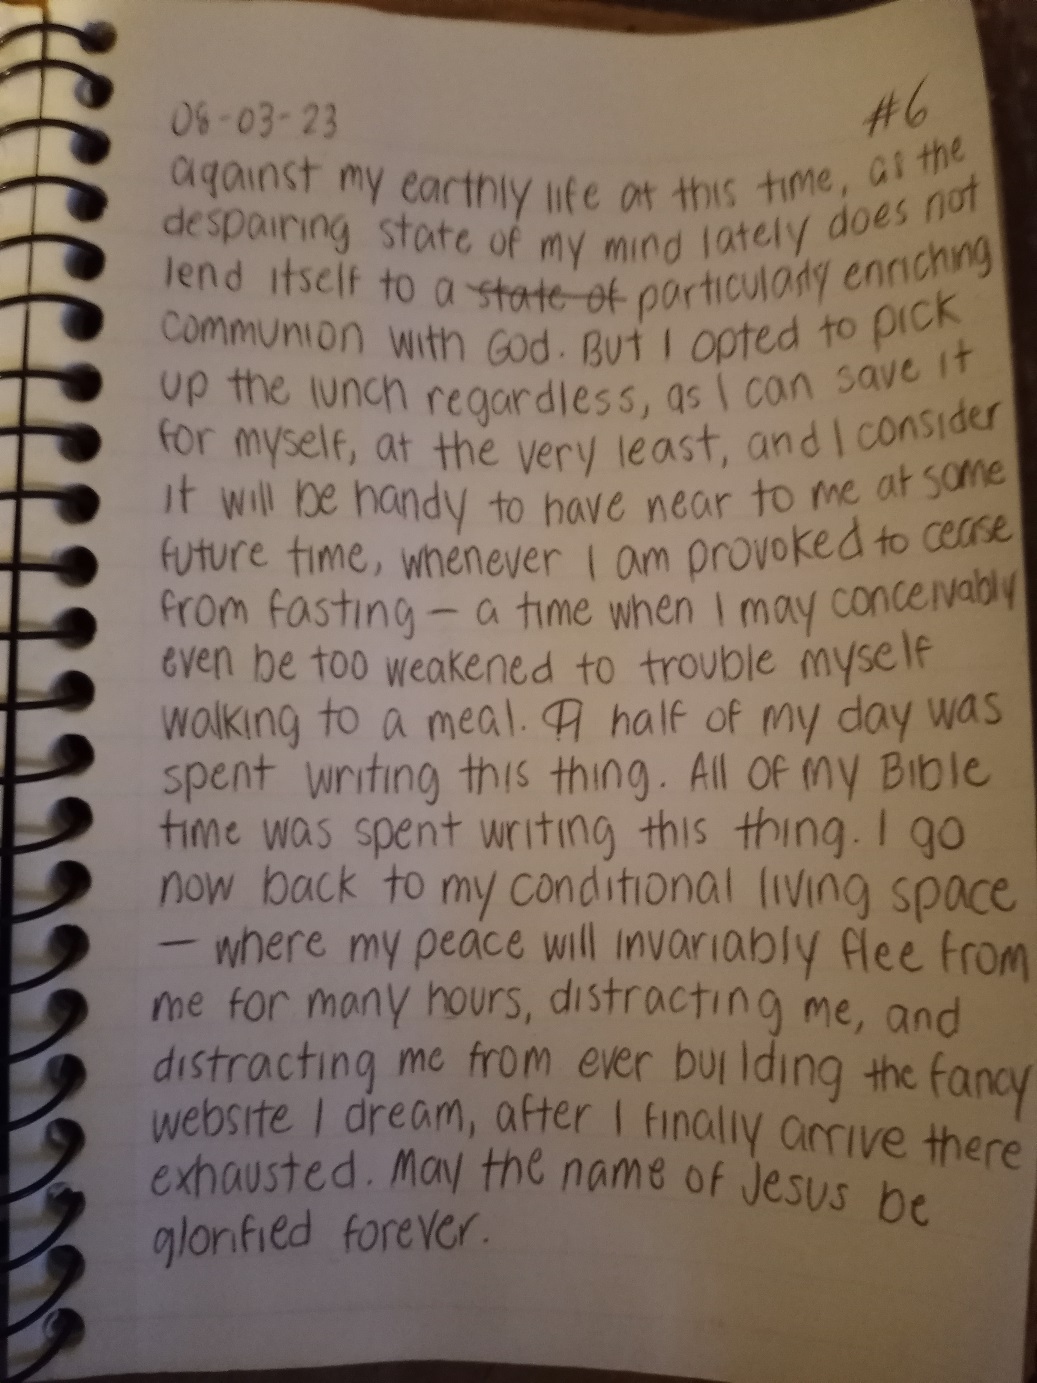 08-03-23 #6
against my earthly life at this time, as the
despairing state of my mind lately does not
lend itself to a ~~state of~~ particularly enriching
communion with God. But I opted to pick
up the lunch regardless, as I can save it
for myself, at the very least, and I consider
it will be handy to have near to me at some
future time, whenever I am provoked to cease
from fasting — a time when I may conceivably
even be too weakened to trouble myself
walking to a meal. A half of my day was
spent writing this thing. All of my Bible
time was spent writing this thing. I go
now back to my conditional living space
— where my peace will invariably flee from
me for many hours, distracting me, and
distracting me from ever building the fancy
website I dream, after I finally arrive there
exhausted. May the name of Jesus be
glorified forever.